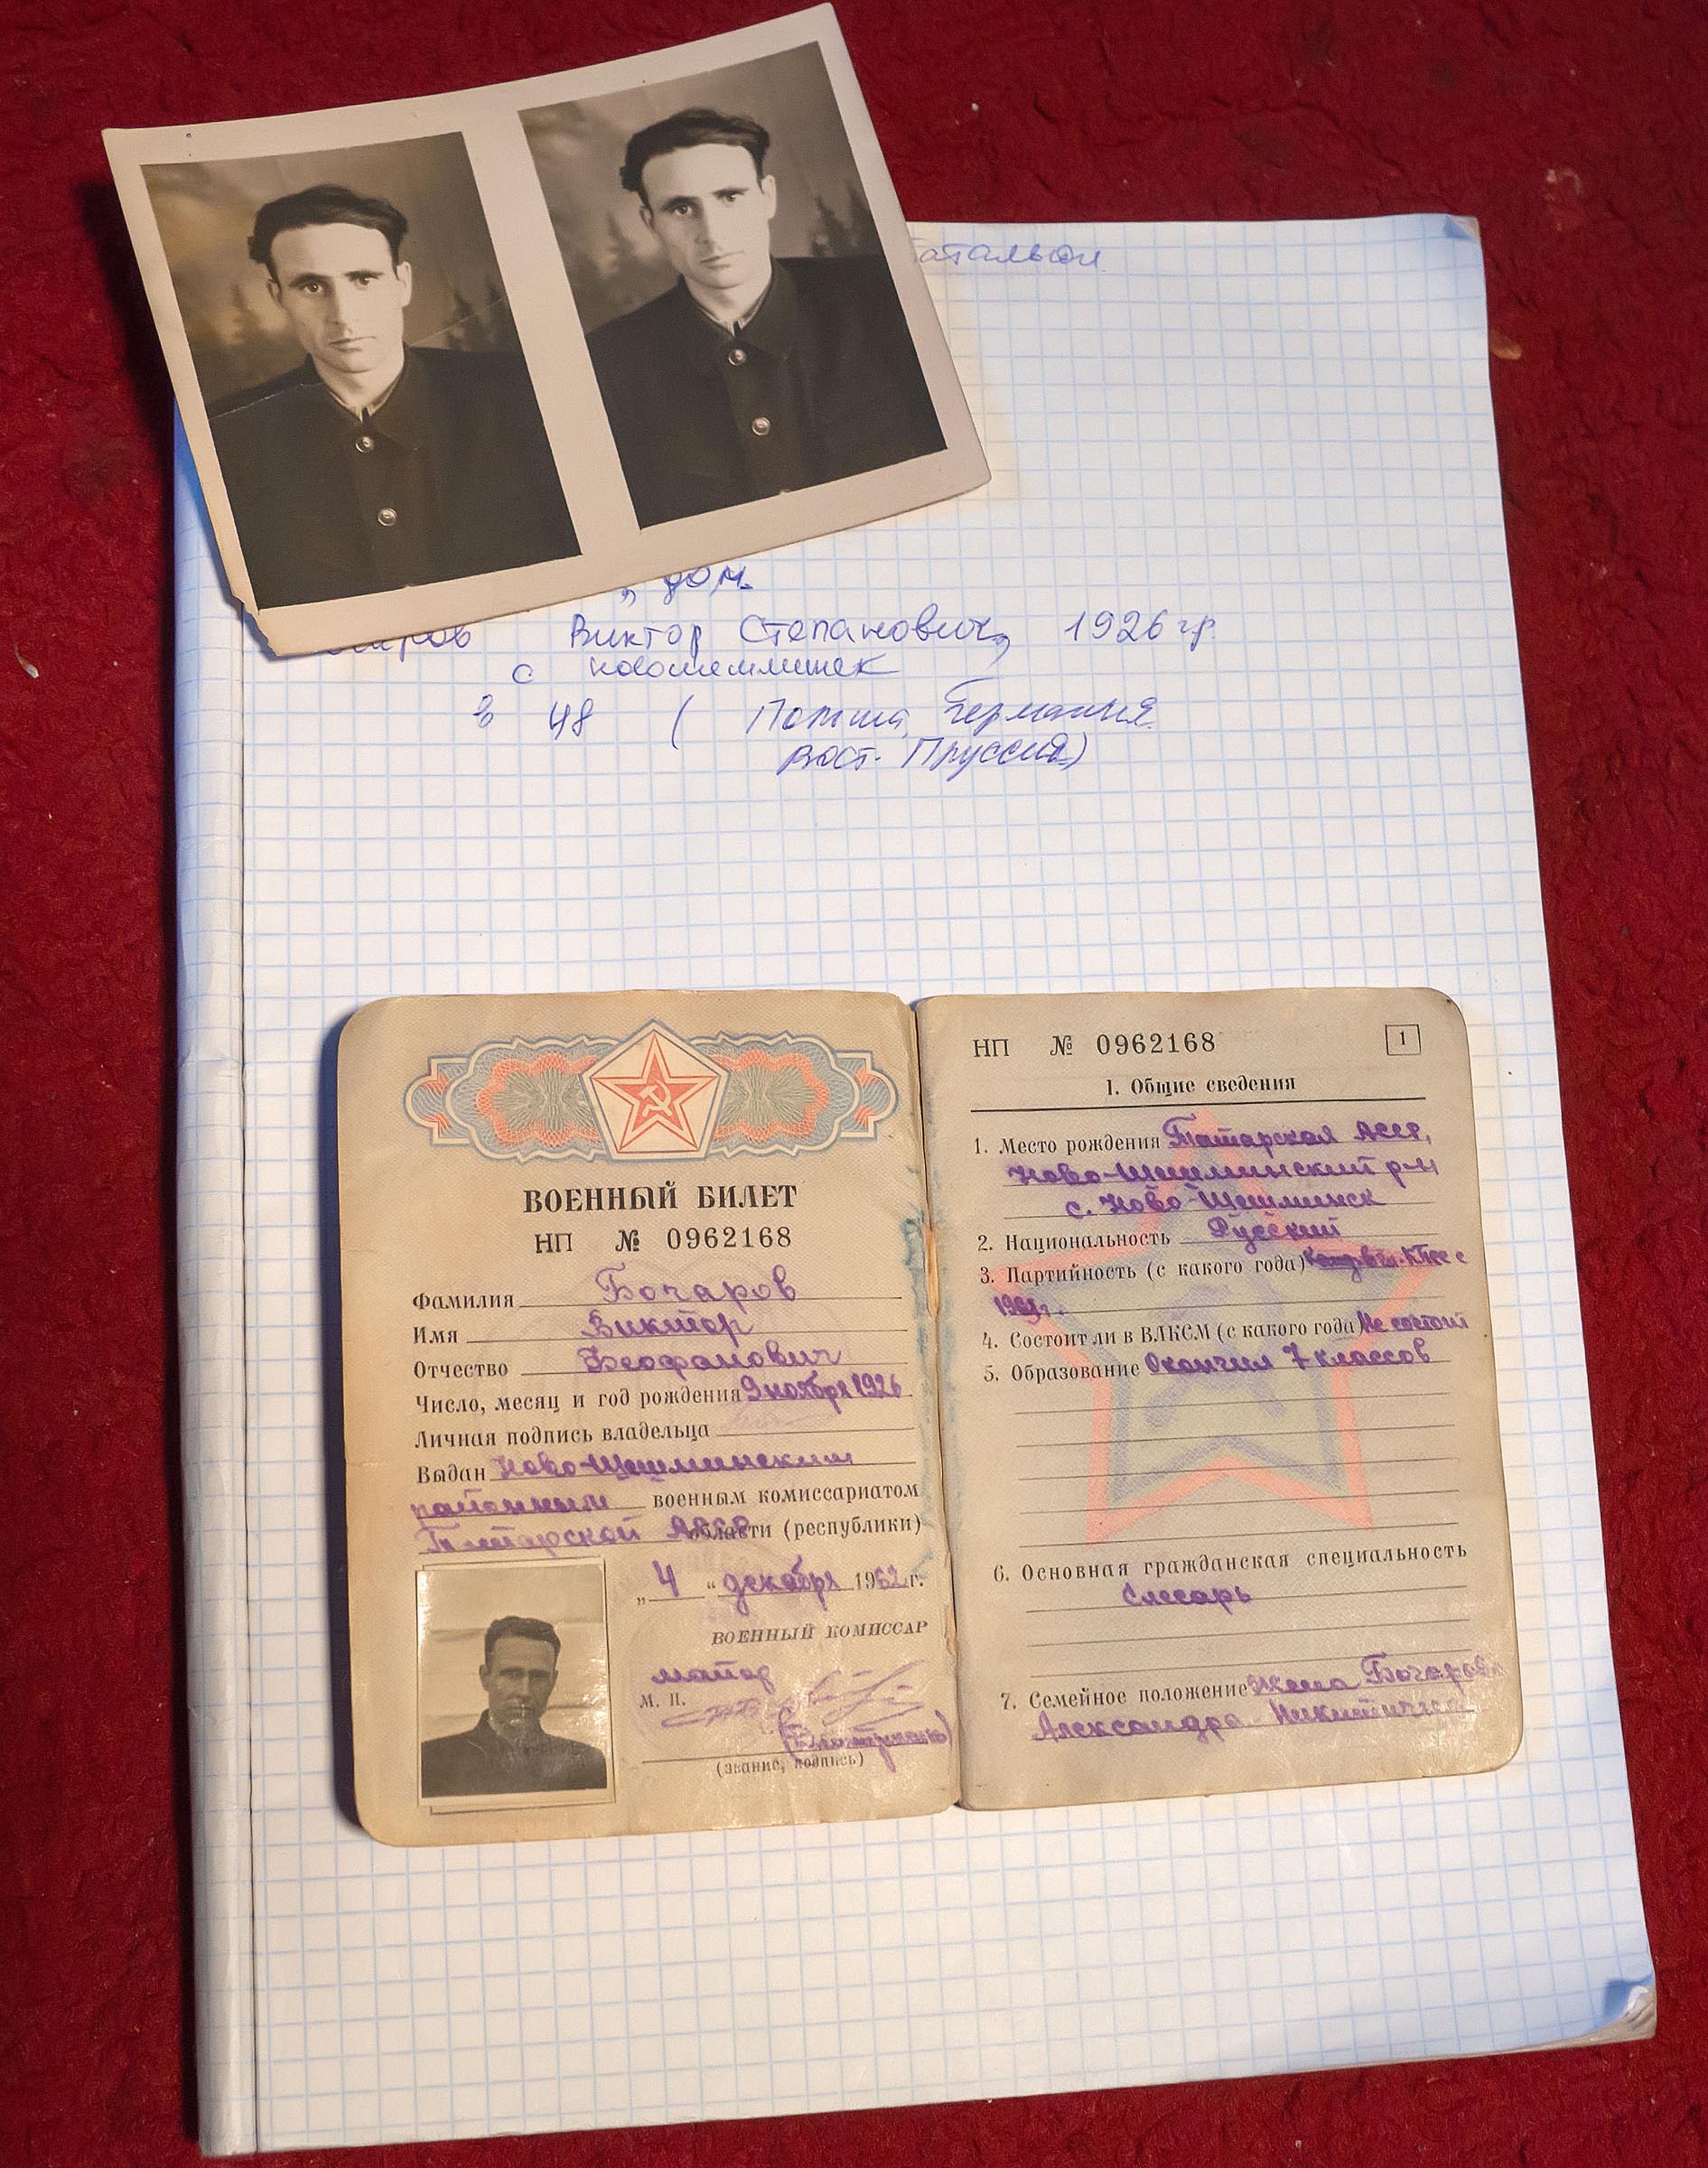 дом.
Виктор Степанович, 1926 гр
с
в 48 ( Польша, Германия
Вост. Пруссия)
ВОЕННЫЙ БИЛЕТ
НП № 0962168
Фамилия Бочаров
Имя Виктор
Отчество Феофанович
Число, месяц и год рождения 9 ноября 1926
Личная подпись владельца
Выдан Ново-Шешминским
районным военным комиссариатом
Татарской АССР области (республики)
„ 4 " декабря 1962 г.
ВОЕННЫЙ КОМИССАР
майор
М. П.
(звание, подпись)
НП № 0962168
1
I. Общие сведения
1. Место рождения Татарская АССР,
Ново-Шешминский р-н
с. Ново-Шешминск
2. Национальность Русский
3. Партийность (с какого года) КПСС с
4. Состоит ли в ВЛКСМ (с какого года) Не состоит
5. Образование Окончил 7 классов
6. Основная гражданская специальность
Слесарь
7. Семейное положение Жена Бочарова
Александра Никитична